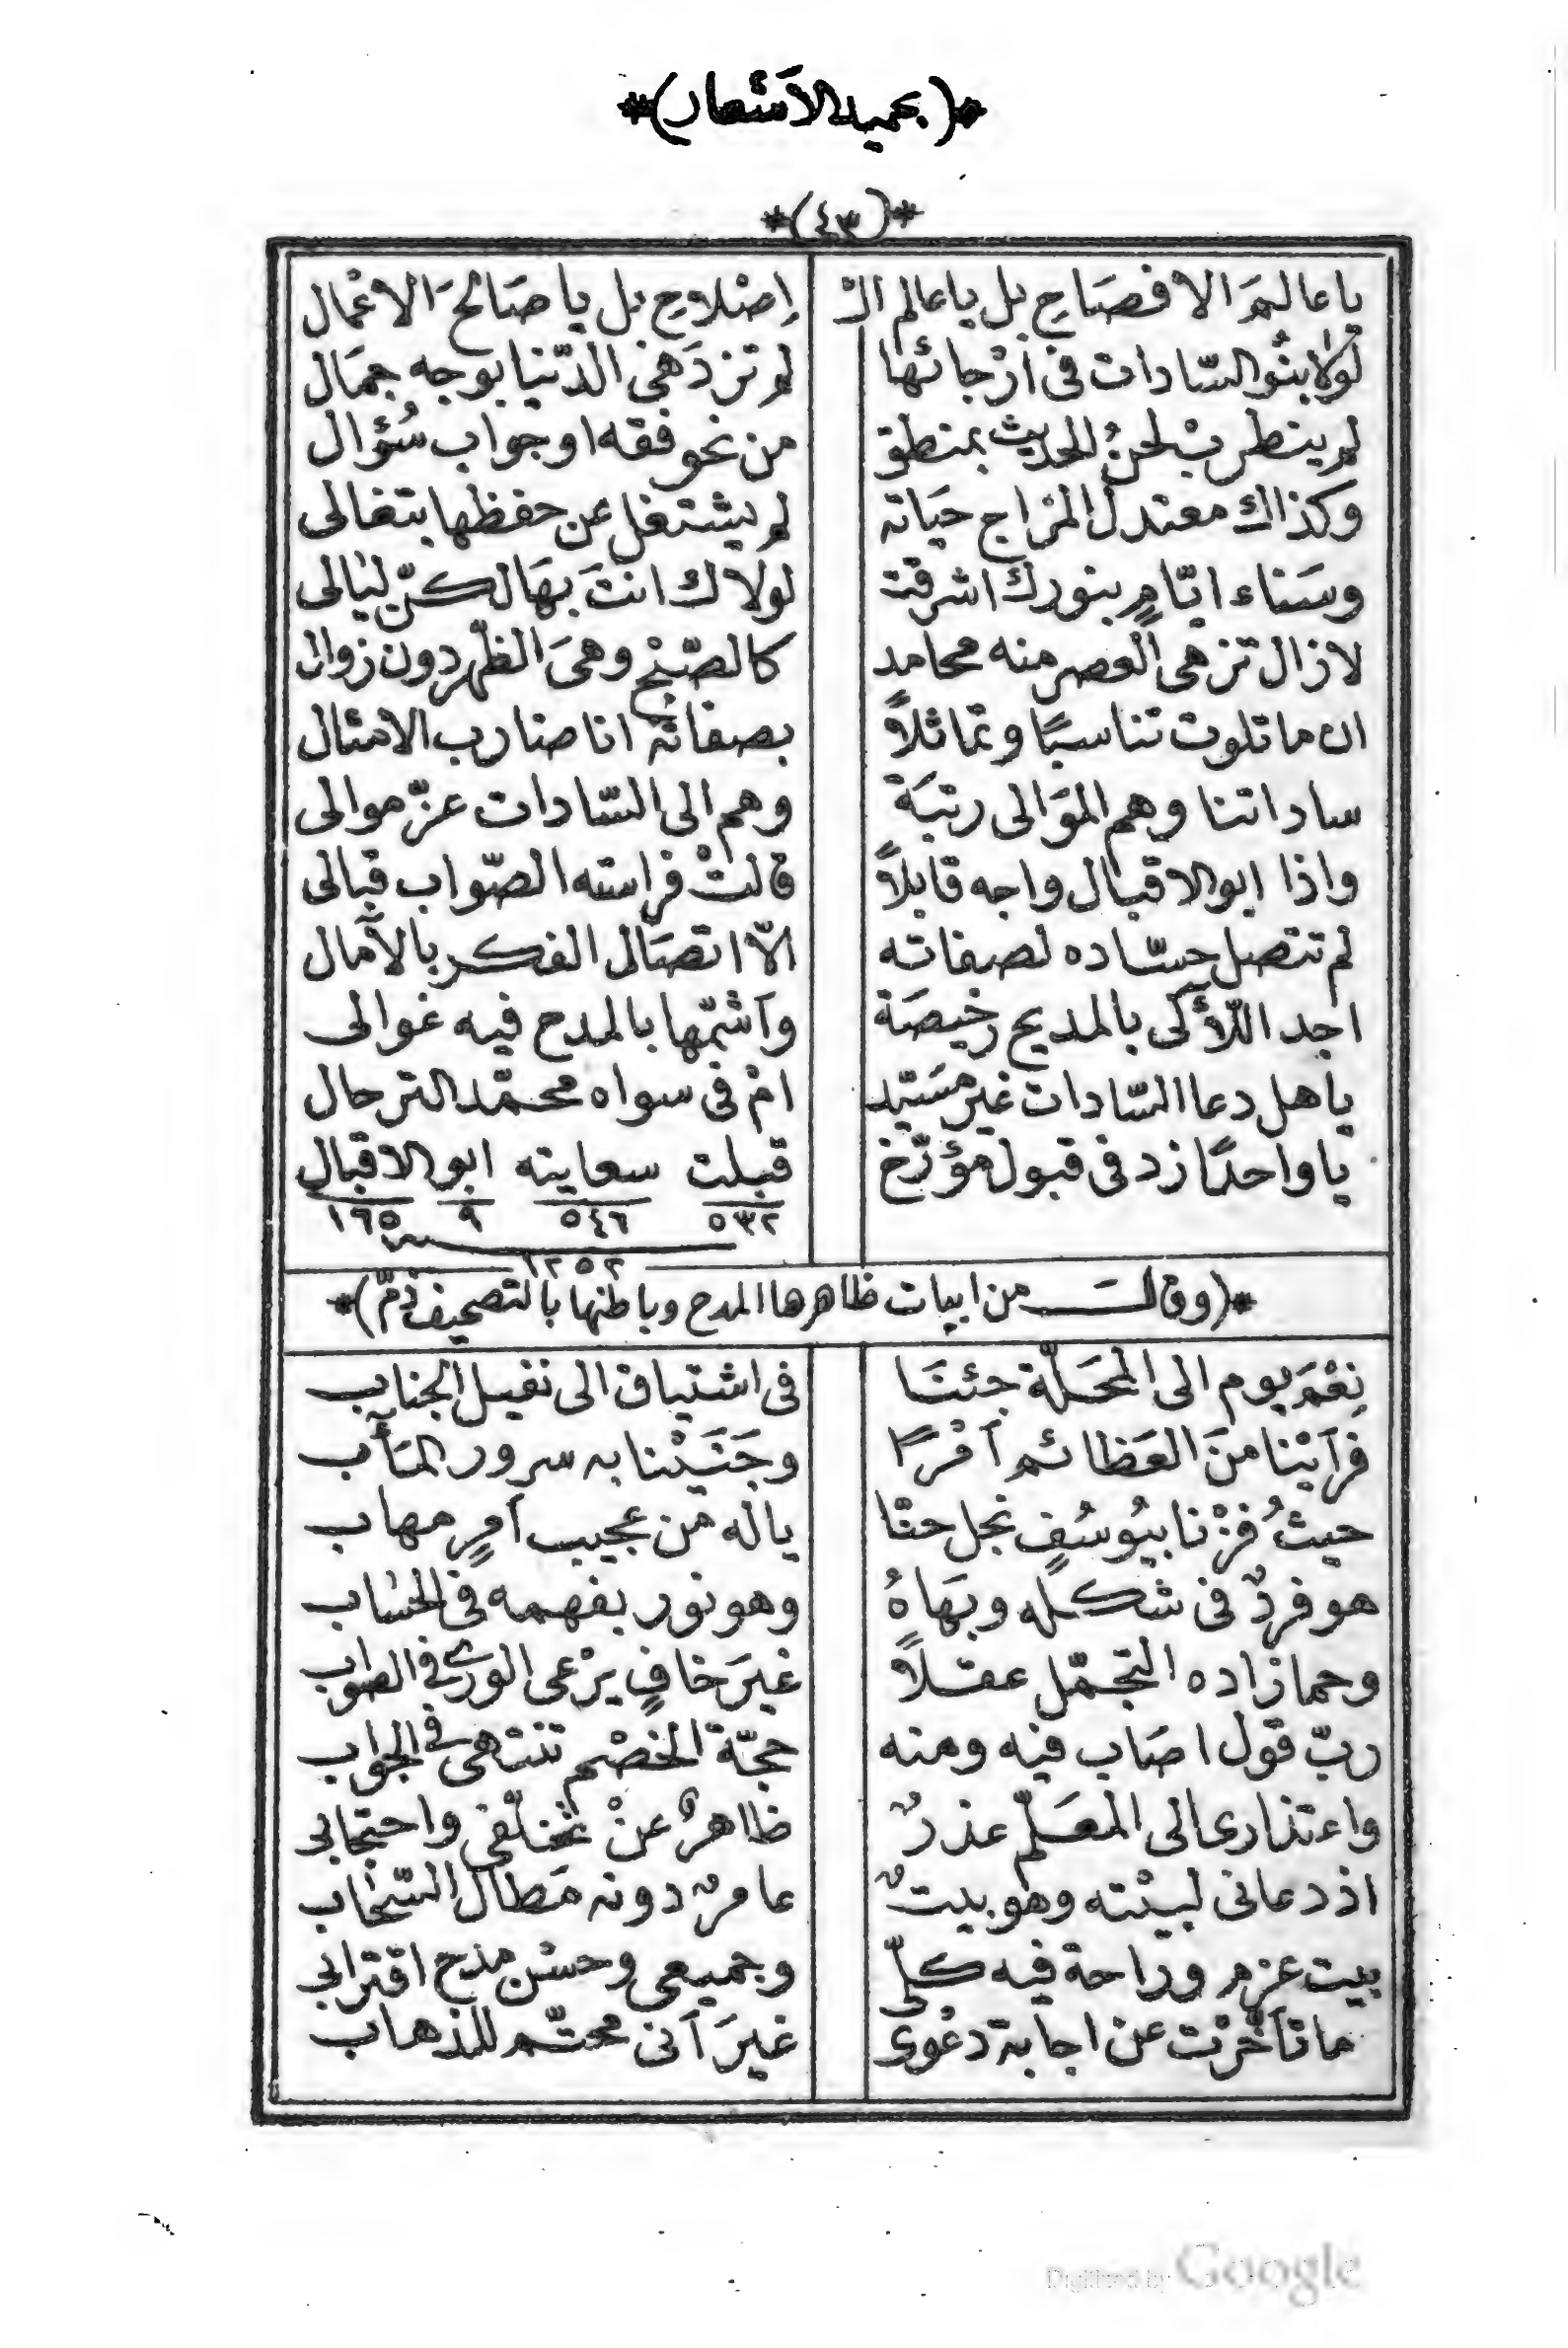 *(بحميد الأشعار)*
*(٤٣)*
يا عالمَ الافصَاحِ بل يا عالم الْـ إصْلاحِ بل يا صَالحَ الاعْمال
لولا بنُو السّادات فى أرْجائها لم تزدَهى الدّنيا بوجه جمَال
لم ينطربْ لحنُ الحديث بمنطق من نحو فقه او جواب سُؤال
وكذاك معتدلُ المزاج حيَاته لم يشتغل عن حفظها بتغالى
وسَناء ايّامٍ بنورك اشرقت لولاك انتَ بهَا لكنّ ليالى
لا زال تزهى العصر منه محامد كالصّبْح وهىَ الظّهر دون زوال
ان ما تلوت تناسبًا وتماثلاً بصفاته انا ضارب الامثال
ساداتنا وهم الموَالى رتبَة وهم الى السّادات عزّ موالى
واذا ابو الاقبال واجه قابلاً قالتْ فراسته الصّواب قبالى
لم تتصل حسّاده لصفاته الاّ اتصَال الفكر بالآمال
اجد اللّآلى بالمديح رخيصَة وأشمّها بالمدح فيه غوالى
يا هل دعا السّادات غير مسَيّد امْ فى سواه محمّد الترحال
يا واحدًا زد فى قبول مؤرّخ قبلت سعايته ابو الاقبال
٥٣٢ ٥٤٦ ٩ ١٦٥
١٢٥٢
*(وقالــت من ابيات ظاهرها المدح وباطنها بالتصحيف ذمّ)*
نِعْمَ يوم الى المحَلّة جئنَا فى اشتياق الى نفيل الجناب
فرأيْنا منَ العَظائم أمْرًا وجَنَيْنا به سرور المَآب
حيثُ فزْنا بيُوسُفٍ نجل حنّا ياله من عجيب أمرٍ مهاب
هو فردٌ فى شكله وبهَاهُ وهو نور بفهمه فى الحسَاب
وحما زاده التجمّل عقلاً غيرَ خافٍ يرْعى الورى فى الصواب
ربّ قول اصَاب فيه ومنه حجّة الخصْم تنتهى فى الجواب
واعتذارى الى المعَلّم عذرٌ ظاهرٌ عنْ تخلّفى واحتجابى
اذ دعانى لبيْته وهو بيتٌ عامرٌ دونه مَطال السّحَاب
بيت عزم وراحة فيه كلّى وجميعى وحسْن مدح اقترابى
ما تأخّرْت عن اجابة دعْوى غيرَ أنى محتّم للذهاب
Digitized by Google